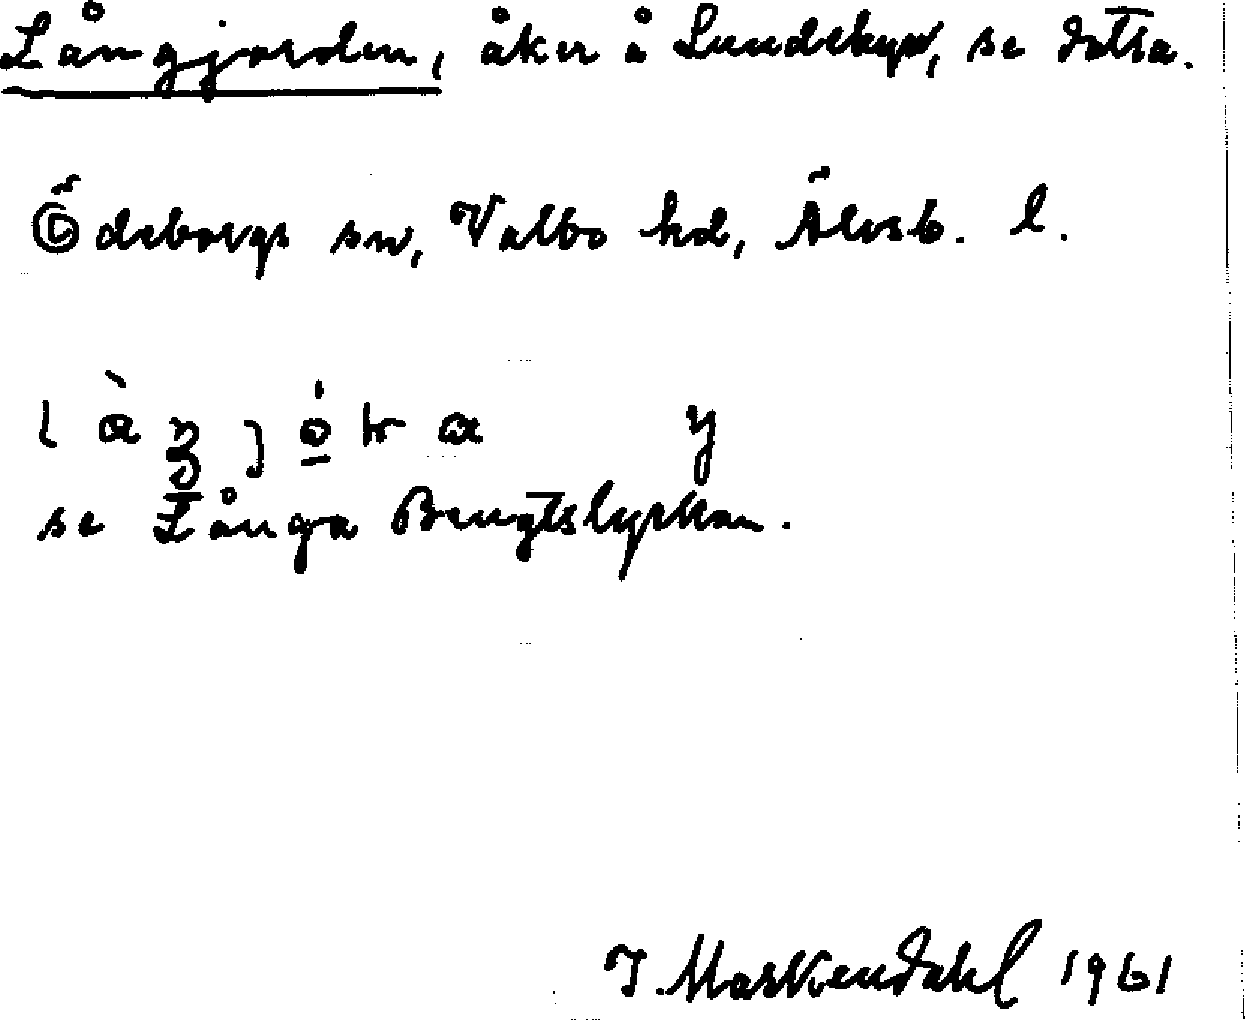 Långjorden, åker å Lundebyn, se detta.
Ödeborgs sn, Valbo hd, Älvsb. l.
se Långa Bengtslyckan.
J. Markendahl 1961